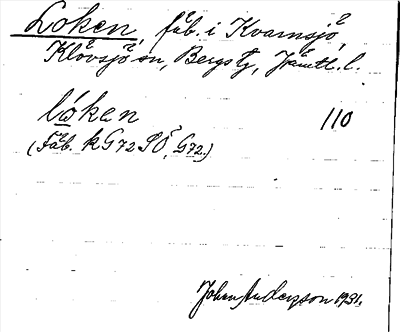 Loken, fäb. i Kvarnsjö,
Klövsjö sn, Bergs tg, Jämtl. l.
lóken 110
(Fäb. k G72 SÖ, G72.)
Johan Anderzson 1931.